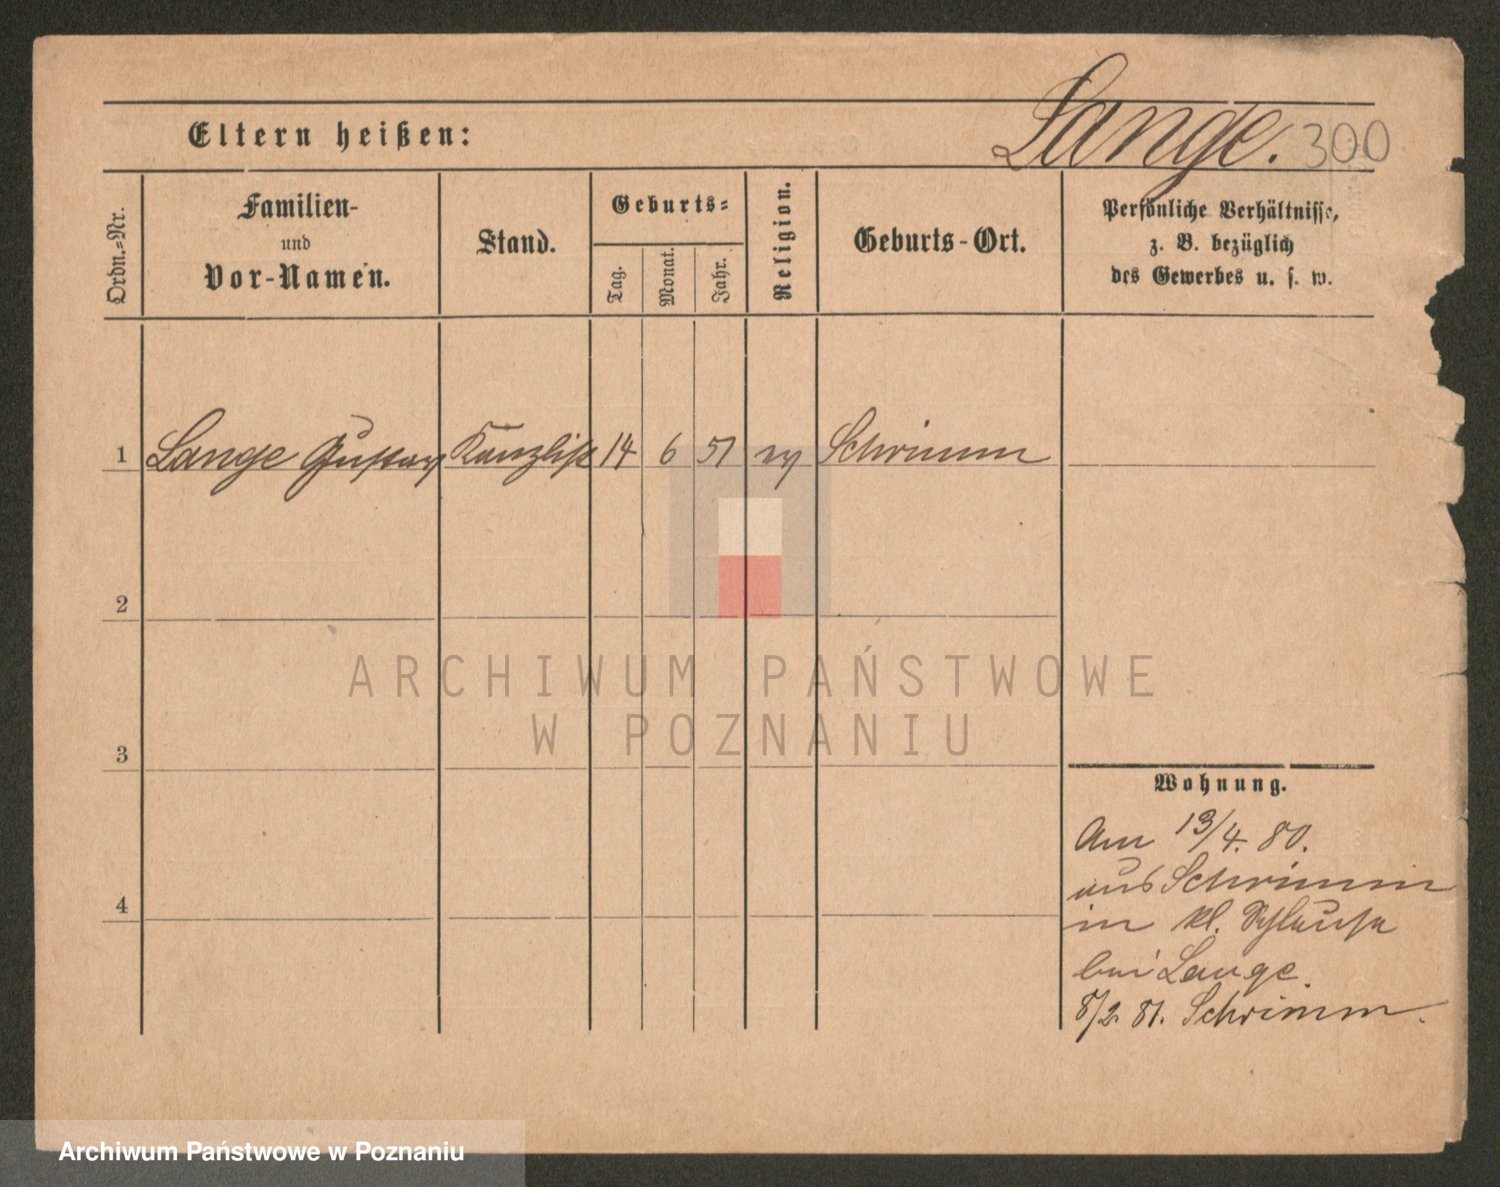 Eltern heißen:
Lange. 300
Ordn.=Nr.
Familien-
und
Vor-Namen.
Stand.
Geburts=
Tag.
Monat.
Jahr.
Religion.
Geburts-Ort.
Persönliche Verhältnisse,
z. B. bezüglich
des Gewerbes u. s. w.
1 Lange Gustav Kanzlist 14 6 51 ev Schrimm
2
3
4
Wohnung.
Am 13/4. 80.
aus Schrimm
in kl. Schleuse
bei Lange.
8/2. 81. Schrimm.
ARCHIWUM PAŃSTWOWE
W POZNANIU
Archiwum Państwowe w Poznaniu